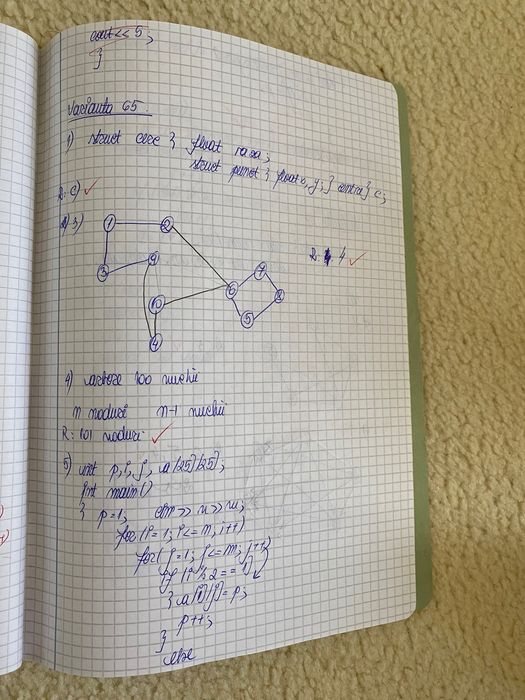 cout<<5;
}
Varianta 65.
1) struct cerc { float raza;
struct punct { float x, y; } centru } c;
R: c)
2) 3)
1 2
3 9
10 6 7 8
4 5
R: 4
4) arbore 100 muchii
n noduri n-1 muchii
R: 101 noduri
5) int p, i, j, a[25][25];
int main()
{ p=1; cin >> n >> m;
for (i=1; i<=n, i++)
for (j=1; j<=m; j++)
if (i%2==1)
{ a[i][j]=p;
p++;
}
else